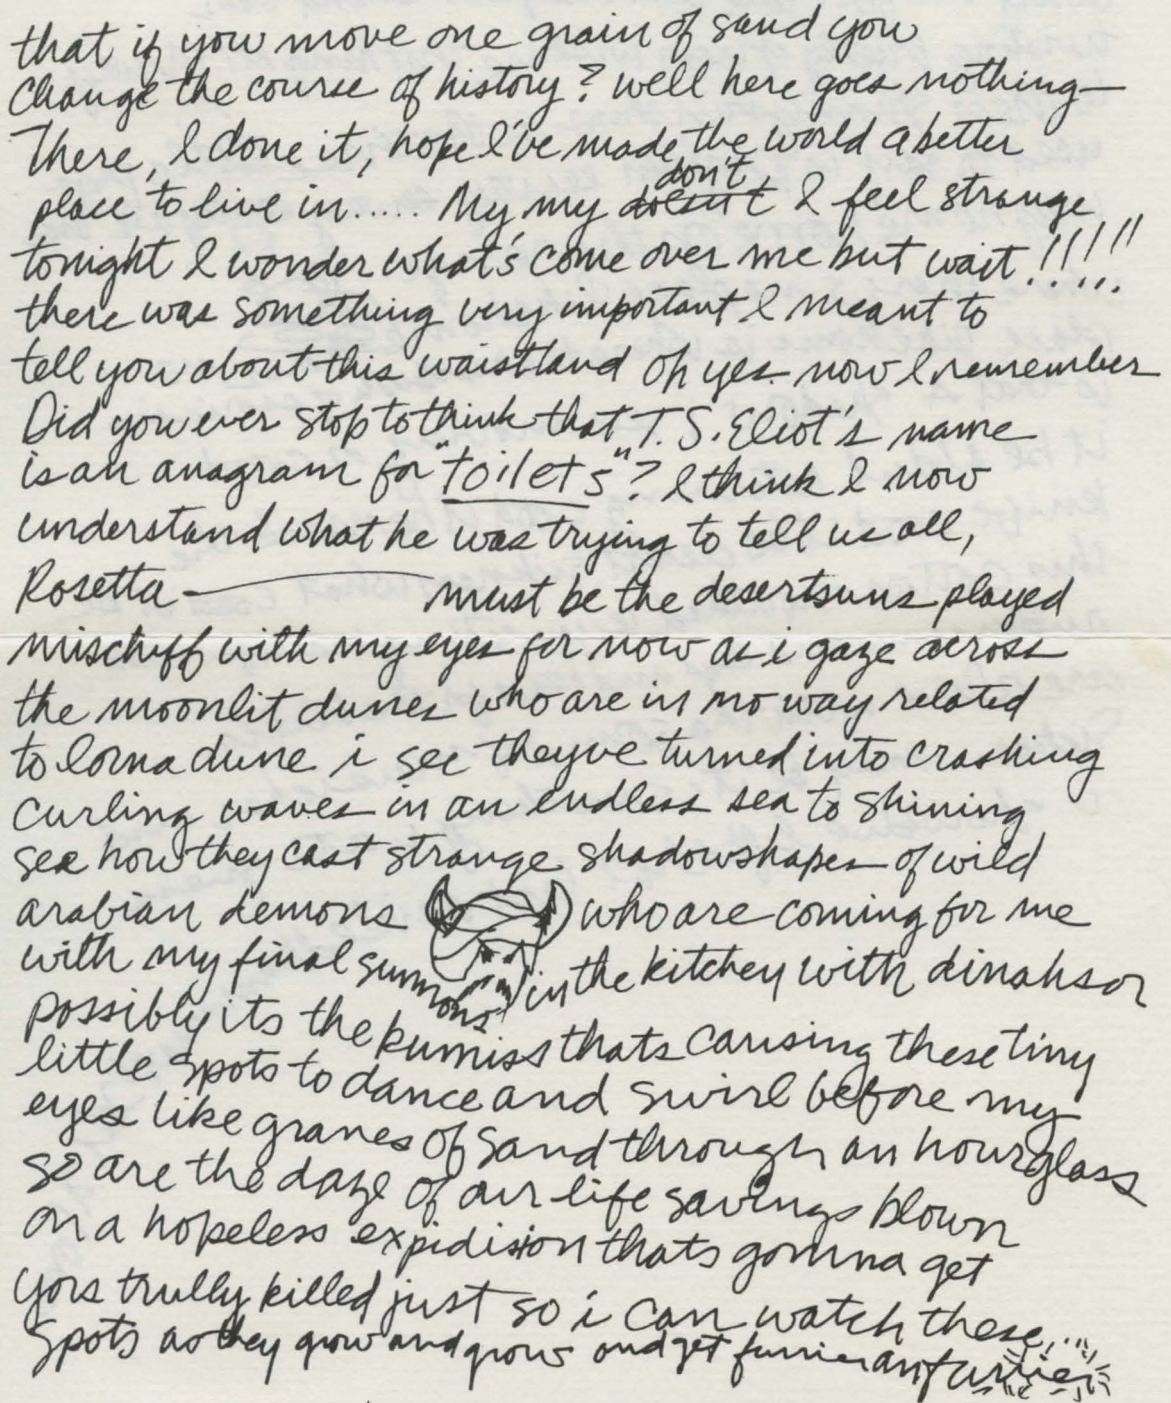 that if you move one grain of sand you
change the course of history? well here goes nothing—
There, I done it, hope I've made the world a better
place to live in..... My my doesn't don't I feel strange
tonight I wonder what's come over me but wait!!!!!
there was something very important I meant to
tell you about this waistland oh yes now I remember
Did you ever stop to think that T.S. Eliot's name
is an anagram for "toilets"? I think I now
understand what he was trying to tell us all,
Rosetta — must be the desertsuns played
mischiff with my eyes for now as i gaze across
the moonlit dunes who are in no way related
to lorna dune i see theyve turned into crashing
curling waves in an endless sea to shining
see how they cast strange shadowshapes of wild
arabian demons who are coming for me
with my final summons in the kitchey with dinahsor
possibly its the kumiss thats causing these tiny
little spots to dance and swirl before my
eyes like granes of sand through an hourglass
so are the daze of our life savings blown
on a hopeless expidision thats gonna get
yors trully killed just so i can watch these
spots as they grow and grow and get furrier an furrier